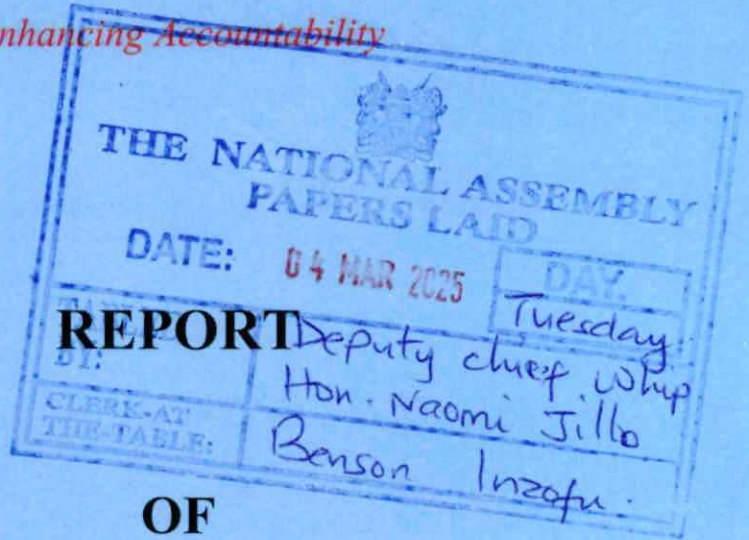 nhancing Accountability
THE NATIONAL ASSEMBLY
PAPERS LAID
DATE: 04 MAR 2025 DAY.
Tuesday
REPORT
BY:
Deputy chief whip
Hon. Naomi Jillo
CLERK-AT
THE-TABLE:
Benson Inzofu.
OF